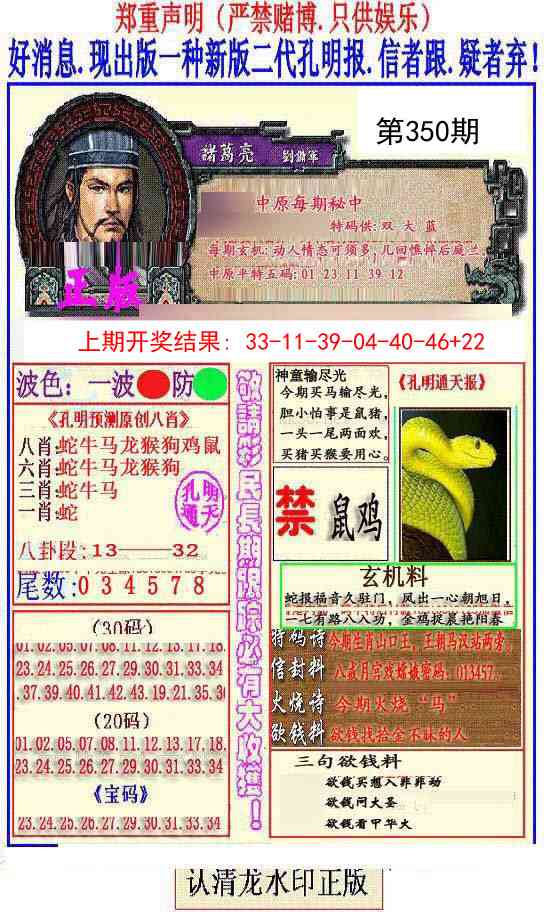 郑重声明（严禁赌博.只供娱乐）
好消息.现出版一种新版二代孔明报.信者跟.疑者弃！
第350期
諸葛亮 劉備軍
中原每期秘中
特码供:双 大 蓝
每期玄机:动人情态可须多,几回憔悴后庭兰.
中原平特五码:01 23 11 39 12
正版
上期开奖结果: 33-11-39-04-40-46+22
波色: 一波 防
《孔明预测原创八肖》
八肖:蛇牛马龙猴狗鸡鼠
六肖:蛇牛马龙猴狗
三肖:蛇牛马
一肖:蛇
孔明
通天
八卦段:13——32
尾数:034578
(30码)
01.02.05.07.08.11.12.13.17.18.
23.24.25.26.27.29.30.31.33.34
.37.39.40.41.42.43.19.21.35.3
(20码)
01.02.05.07.08.11.12.13.17.18
23.24.25.26.27.29.30.31.33.34
《宝码》
23.24.25.26.27.29.30.31.33.34
敬請彩民長期跟踪必有大收獲！
神童输尽光
今期买马输尽光，
胆小怕事是鼠猪，
一头一尾两面欢，
买猪买猴要用心。
《孔明通天报》
禁 鼠鸡
玄机料
蛇报福音久驻门，凤出一心朝旭日，
一七有路八八功，金鸡捉裹艳阳春
特码诗 今期生肖山口王，王朝马汉站两旁。
信封料 八戒月宫戏嫦娥密码：013457.
火烧诗 今期火烧“马”
欲钱料 欲钱找拾金不昧的人
三句欲钱料
欲钱买想入菲菲动
欲钱问大圣
欲钱看甲华火
认清龙水印正版